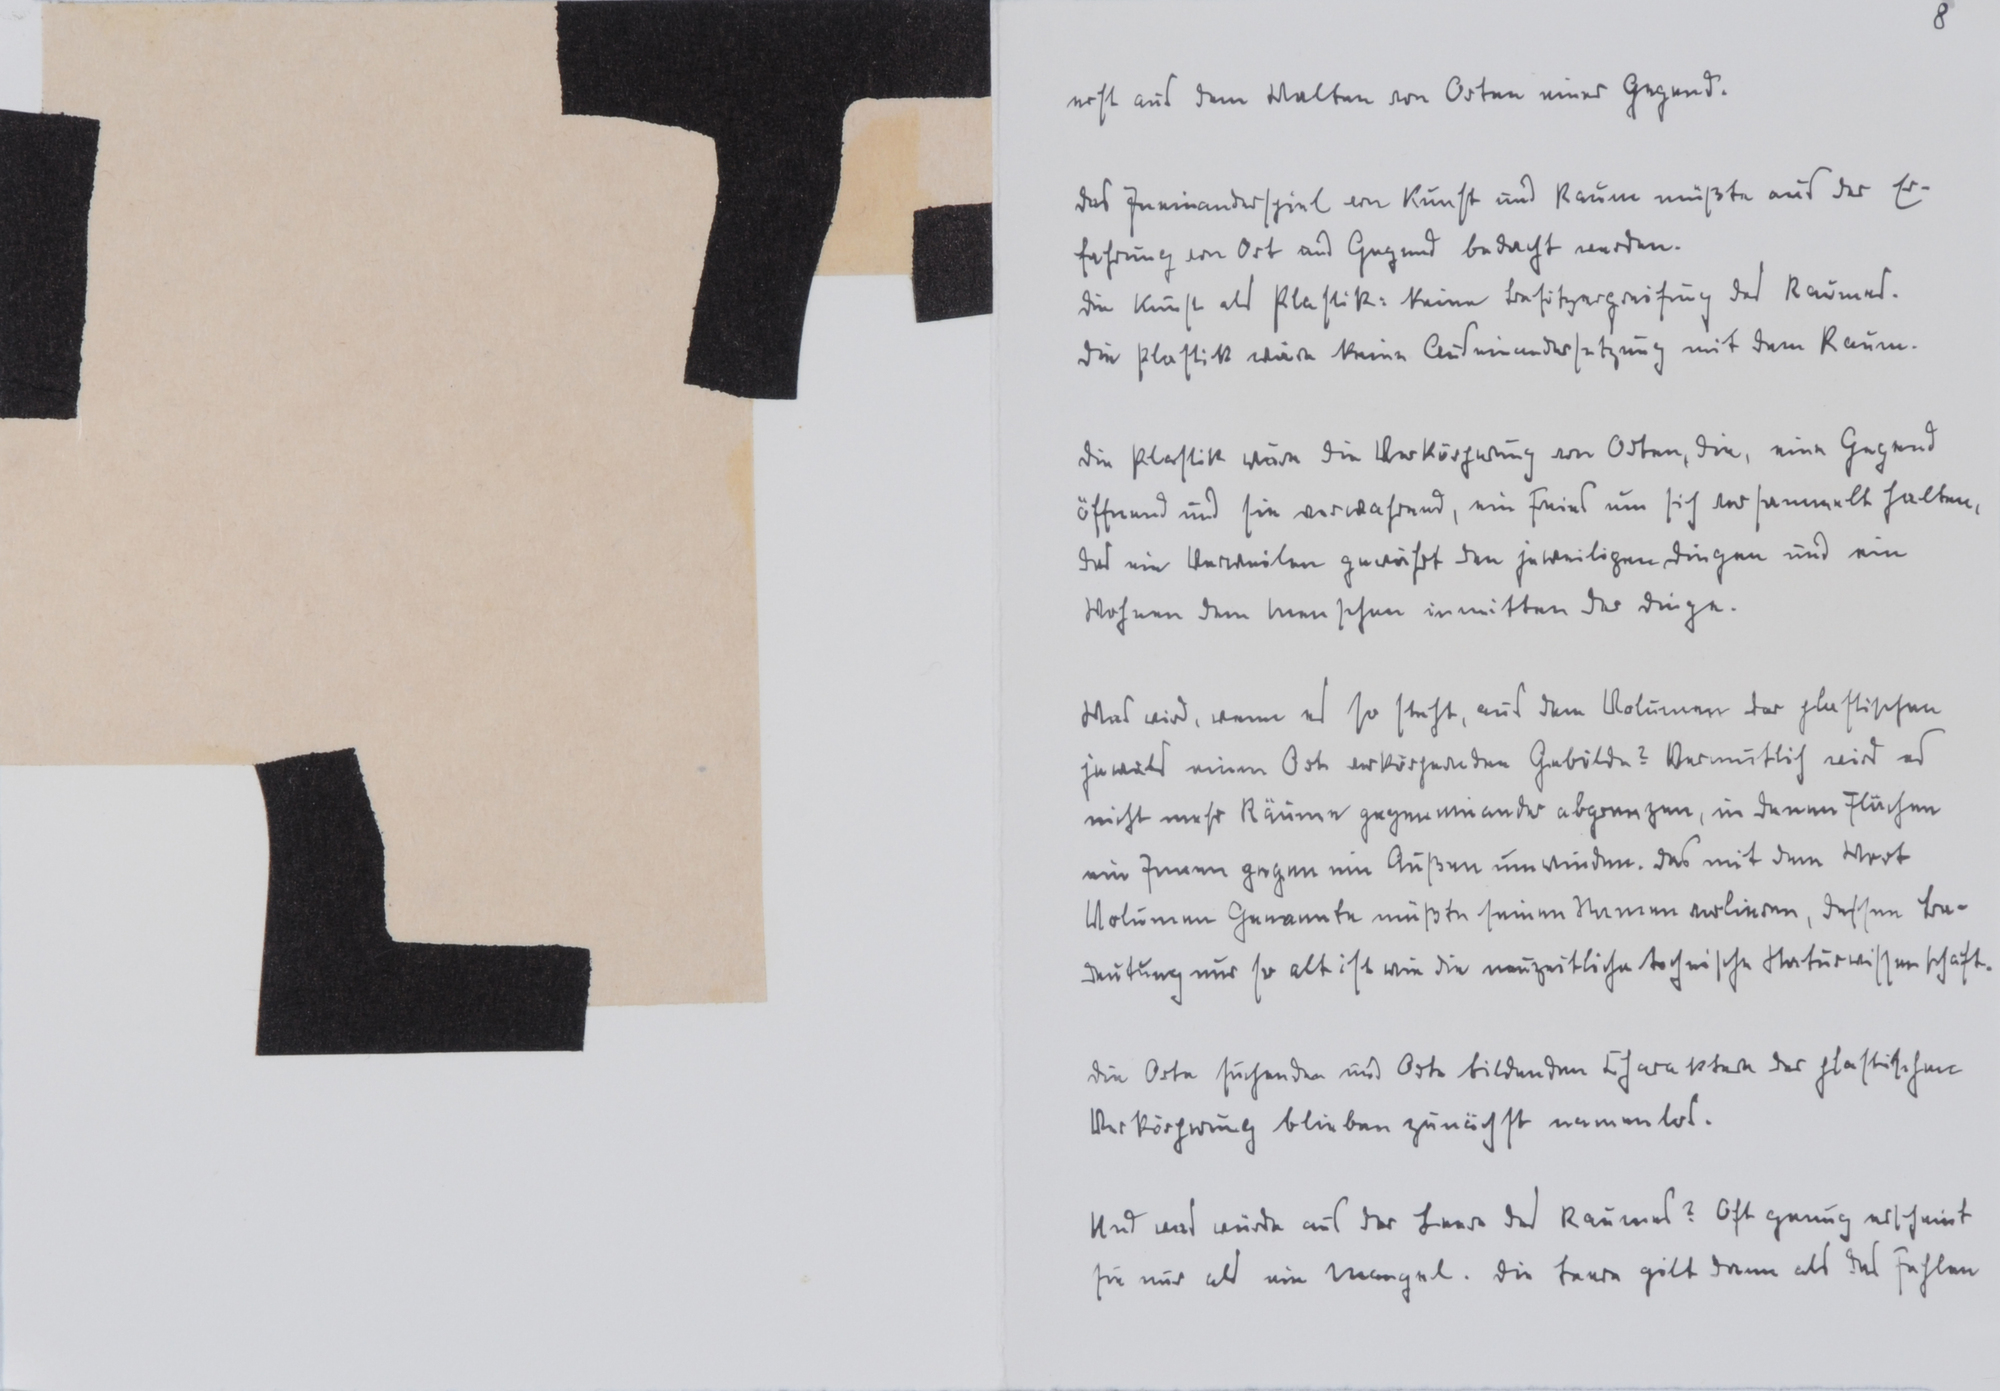 8
erst aus dem Walten von Orten einer Gegend.
Das Ineinanderspiel von Kunst und Raum müßte aus der Er-
fahrung von Ort und Gegend bedacht werden.
Die Kunst als Plastik: Keine Besitzergreifung des Raumes.
Die Plastik wäre keine Auseinandersetzung mit dem Raum.
Die Plastik wäre die Verkörperung von Orten, die, eine Gegend
öffnend und sie verwahrend, ein Freies um sich versammelt halten,
das ein Verweilen gewährt den jeweiligen Dingen und ein
Wohnen dem Menschen inmitten der Dinge.
Was wird, wenn es so steht, aus dem Volumen der plastischen
jeweils einen Ort verkörpernden Gebilde? Vermutlich wird es
nicht mehr Räume gegeneinander abgrenzen, in denen Flächen
ein Innen gegen ein Außen umwinden. Das mit dem Wort
Volumen Genannte müßte seinen Namen verlieren, dessen Be-
deutung nur so alt ist wie die neuzeitliche technische Naturwissenschaft.
Die Orte suchenden und Orte bildenden Charaktere der plastischen
Verkörperung blieben zunächst namenlos.
Und was würde aus der Leere des Raumes? Oft genug erscheint
sie nur als ein Mangel. Die Leere gilt dann als das Fehlen